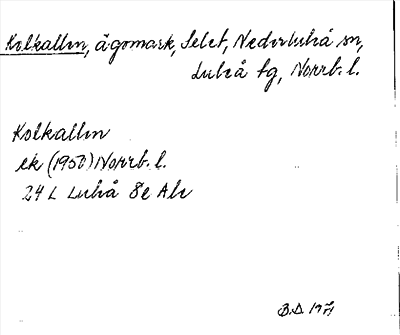 Kolkallen, ägomark, Selet, Nederluleå sn,
Luleå tg, Norrb. l.
Kolkallen
ek (1950) Norrb. l.
24 L Luleå 8e Alv
B.D. 1971